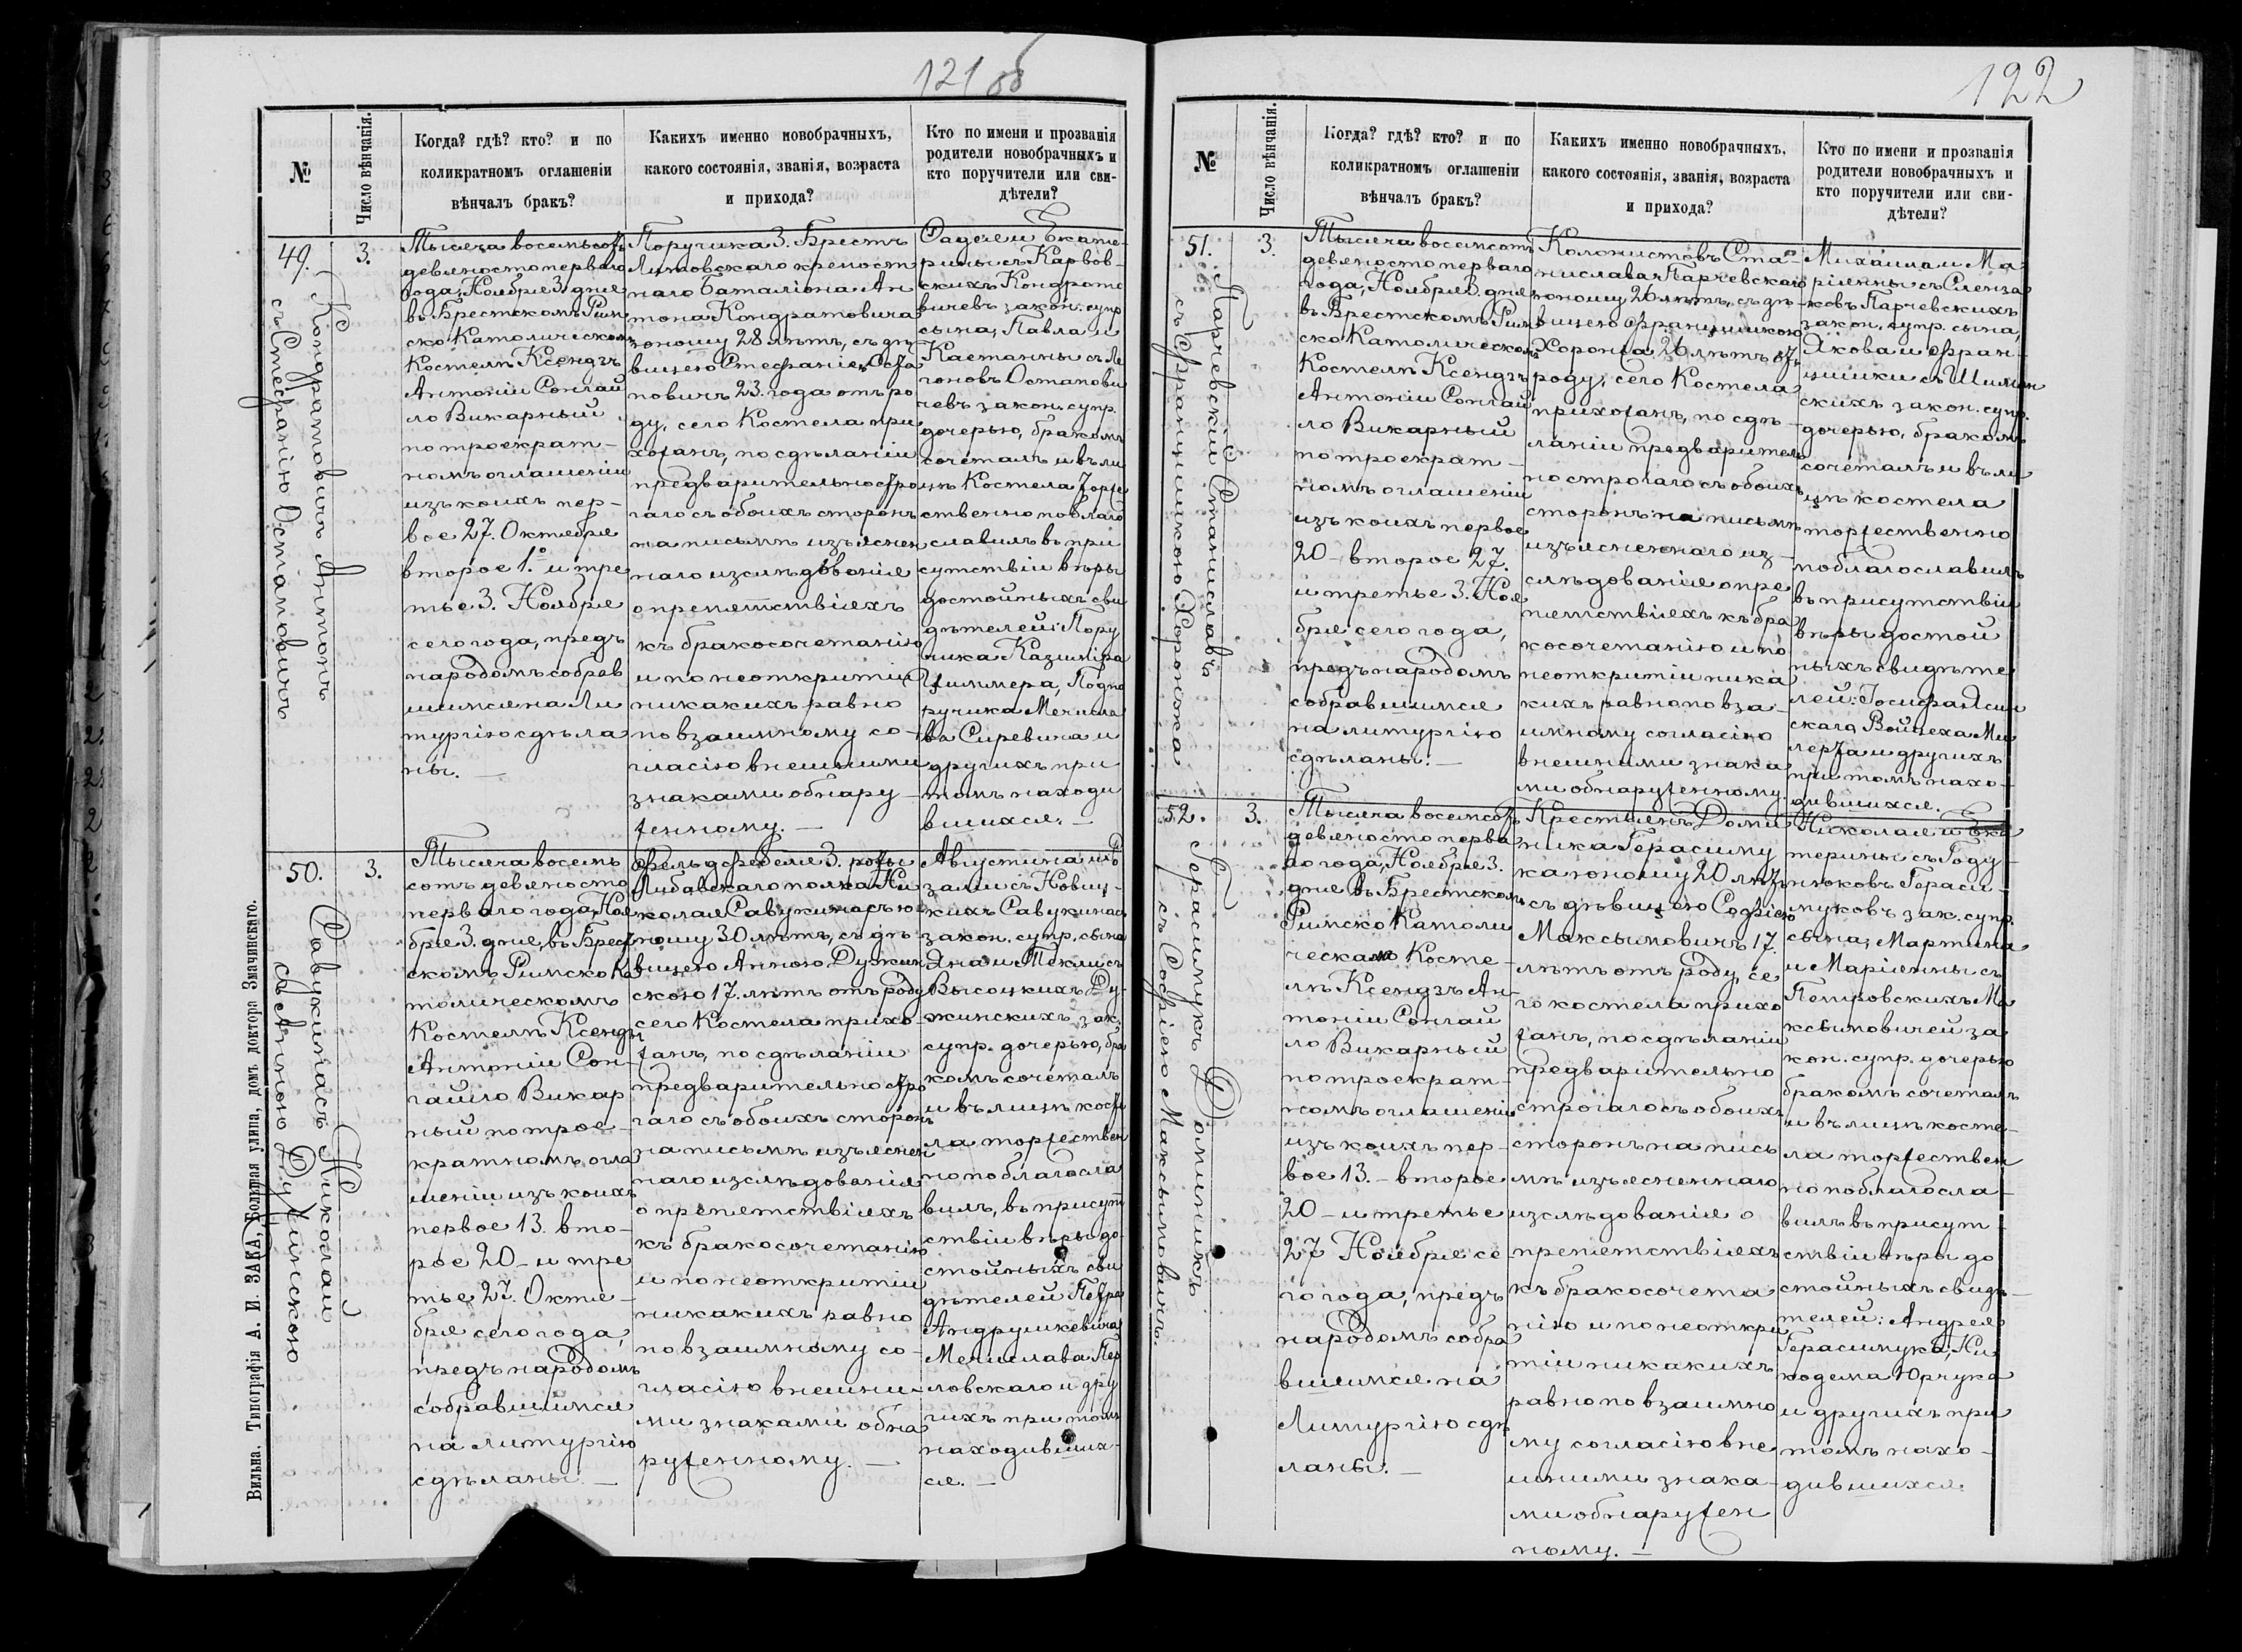 121 об
№
Число вѣнчанія.
Когда? гдѣ? кто? и по
коликратномъ оглашеніи
вѣнчалъ бракъ?
Какихъ именно новобрачныхъ,
какого состоянія, званія, возраста
и прихода?
Кто по имени и прозванія
родители новобрачныхъ и
кто поручители или сви-
дѣтели?
49.
Кондратовичъ Антонъ
съ Стефанію Остаповичъ
3.
Тысяча восемьсотъ
девяносто перваго
года, Ноября 3. дня
въ Брестскомъ Рим
ско Католическомъ
Костелѣ Ксендзъ
Антоній Сонгай
ло Викарный
по троекрат-
номъ оглашеніи
изъ коихъ пер-
вое 27. Октября
второе 1.º и тре
тье 3. Ноября
сего года, предъ
народомъ собрав
шимся на Ли
тургію сдѣла
ны.
Поручика 3. Брестъ
Литовскаго крепост
наго баталіона Ан
тона Кондратовича
юношу 28 лѣтъ, съ дѣ
вицею Стефаніею Оста
повичъ 23. года отъ ро
ду, сего Костела при
хожанъ, по сдѣланіи
предварительно стро
гаго съ обоихъ сторонъ
на письмѣ изъяснен
наго изслѣдованія
о препятствіяхъ
къ бракосочетанію
и по неоткритіи
никакихъ равно
по взаимному со-
гласію внешними
знаками обнару-
женному.
Фадея и Екате-
рины съ Карвов-
скихъ Кондрато
вичевъ закон. супр
сына, Павла и
Каетанны съ Ле
гоновъ Остапови
чевъ закон. супр.
дочерью, бракомъ
сочеталъ и въ ли
цѣ Костела торже
ственно поблаго
славилъ въ при
сутствіи вѣры
достойныхъ сви
дѣтелей: Пору
чика Казиміра
Циммера, Подпо
ручика Мечисла
ва Сиревича и
другихъ при
томъ находи
вшихся.
50.
Савукинасъ Николай
съ Анною Дужинскою
3.
Тысяча восемь
сотъ девяносто
перваго года, Ноя
бря 3. дня, въ Брест
скомъ Римско Ка
толическомъ
Костелѣ Ксендзъ
Антоній Сон-
гайло Викар
ный по трое-
кратномъ огла
шеніи изъ коихъ
первое 13. вто-
рое 20 - и тре
тье 27. Октя-
бря сего года,
предъ народомъ
собравшимся
на литургію
сдѣланы.
Фельдфебеля 3. роты
Либавскаго полка Ни
колая Савукинасъ ю
ношу 30 лѣтъ, съ дѣ
вицею Анною Дужин
скою 17. лѣтъ отъ роду
сего Костела прихо-
жанъ, по сдѣланіи
предварительно стро
гаго съ обоихъ сторонъ
на письмѣ изъяснен
наго изслѣдованія
о препятствіяхъ
къ бракосочетанію
и по неоткритіи
никакихъ равно
по взаимному со-
гласію внешни-
ми знаками обна
руженному.
Августина и Ро
заліи съ Новиц-
кихъ Савукинасъ
закон. супр. сына
Яна и Текли съ
Высоцкихъ Ду-
жинскихъ зак.
супр. дочерью, бра
комъ сочеталъ
и въ лицѣ косте
ла торжествен
но поблагосла
вилъ, въ присут
ствіи вѣры до-
стойныхъ сви
дѣтелей Петра
Андрушкевича
Мечислава Пав
ловскаго и дру
гихъ при томъ
находивших-
ся.
Вильна. Типографія А. И. ЗАКА, Большая улица, домъ доктора Змачинскаго.
122
№
Число вѣнчанія.
Когда? гдѣ? кто? и по
коликратномъ оглашеніи
вѣнчалъ бракъ?
Какихъ именно новобрачныхъ,
какого состоянія, званія, возраста
и прихода?
Кто по имени и прозванія
родители новобрачныхъ и
кто поручители или сви-
дѣтели?
51.
Парчевскій Станиславъ
съ Францишкою Хоронжа
3.
Тысяча восемсотъ
девяносто перваго
года, Ноября 3. дня
въ Брестскомъ Рим
ско Католическомъ
Костелѣ Ксендзъ
Антоній Сонгай
ло Викарный
по троекрат-
номъ оглашеніи
изъ коихъ первое
20 - второе 27.
и третье 3. Ноя
бря сего года,
предъ народомъ
собравшимся
на литургію
сдѣланы.
Колонистовъ Ста-
нислава Парчевскаго
юношу 26 лѣтъ, съ дѣ-
вицею Францишкою
Хоронжа 26 лѣтъ отъ
роду, сего Костела
прихожанъ, по сдѣ-
ланіи предваритель
но строгаго съ обоихъ
сторонъ на письмѣ
изъясненнаго из-
слѣдованія о пре
пятствіяхъ къ бра
косочетанію и по
неоткритіи ника
кихъ равно по вза-
имному согласію
внешними знака
ми обнаруженному.
Михаила и Ма
ріянны съ Сленза
ковъ Парчевскихъ
закон. супр. сына,
Якова и Фран-
цишки съ Шиман
скихъ закон. супр.
дочерью, бракомъ
сочеталъ и въ ли
цѣ костела
торжественно
поблагославилъ
въ присутствіи
вѣры достой
ныхъ свидѣте
лей: Іосифа Ясин
скаго, Войцеха Ми
лерта и другихъ
при томъ нахо-
дившихся.
52.
Герасимукъ Доминикъ
съ Софіею Максымовичъ.
3.
Тысяча восемсотъ
девяносто перва
го года, Ноября 3.
дня въ Брестскомъ
Римско Католи
ческомъ Косте-
лѣ Ксендзъ Ан-
тоній Сонгай
ло Викарный
по троекрат-
номъ оглашеніи
изъ коихъ пер-
вое 13. - второе
20 - и третье
27 Ноября се
го года, предъ
народомъ собра
вшимся на
Литургію сдѣ
ланы.
Крестьянъ Доми
ника Герасиму
ка юношу 20 лѣтъ
съ дѣвицею Софіею
Максымовичъ 17.
лѣтъ отъ роду, се
го костела прихо
жанъ, по сдѣланіи
предварительно
строгаго съ обоихъ
сторонъ на пись
мѣ изъясненнаго
изслѣдованія о
препятствіяхъ
къ бракосочета
нію и по неоткри
тіи никакихъ
равно по взаимно
му согласію вне
шними знака
ми обнаружен
ному.
Николая и Ека
терины съ Году-
нюковъ Гераси-
муковъ зак. супр.
сына, Мартина
и Маріянны съ
Петровскихъ Ма
ксымовичей за
кон. супр. дочерью
бракомъ сочеталъ
и въ лицѣ косте-
ла торжествен
но поблагосла-
вилъ въ присут-
ствіи вѣры до
стойныхъ свидѣ-
телей: Андрея
Герасимука, Ни
кодема Юрчука
и другихъ при
томъ нахо-
дившихся.